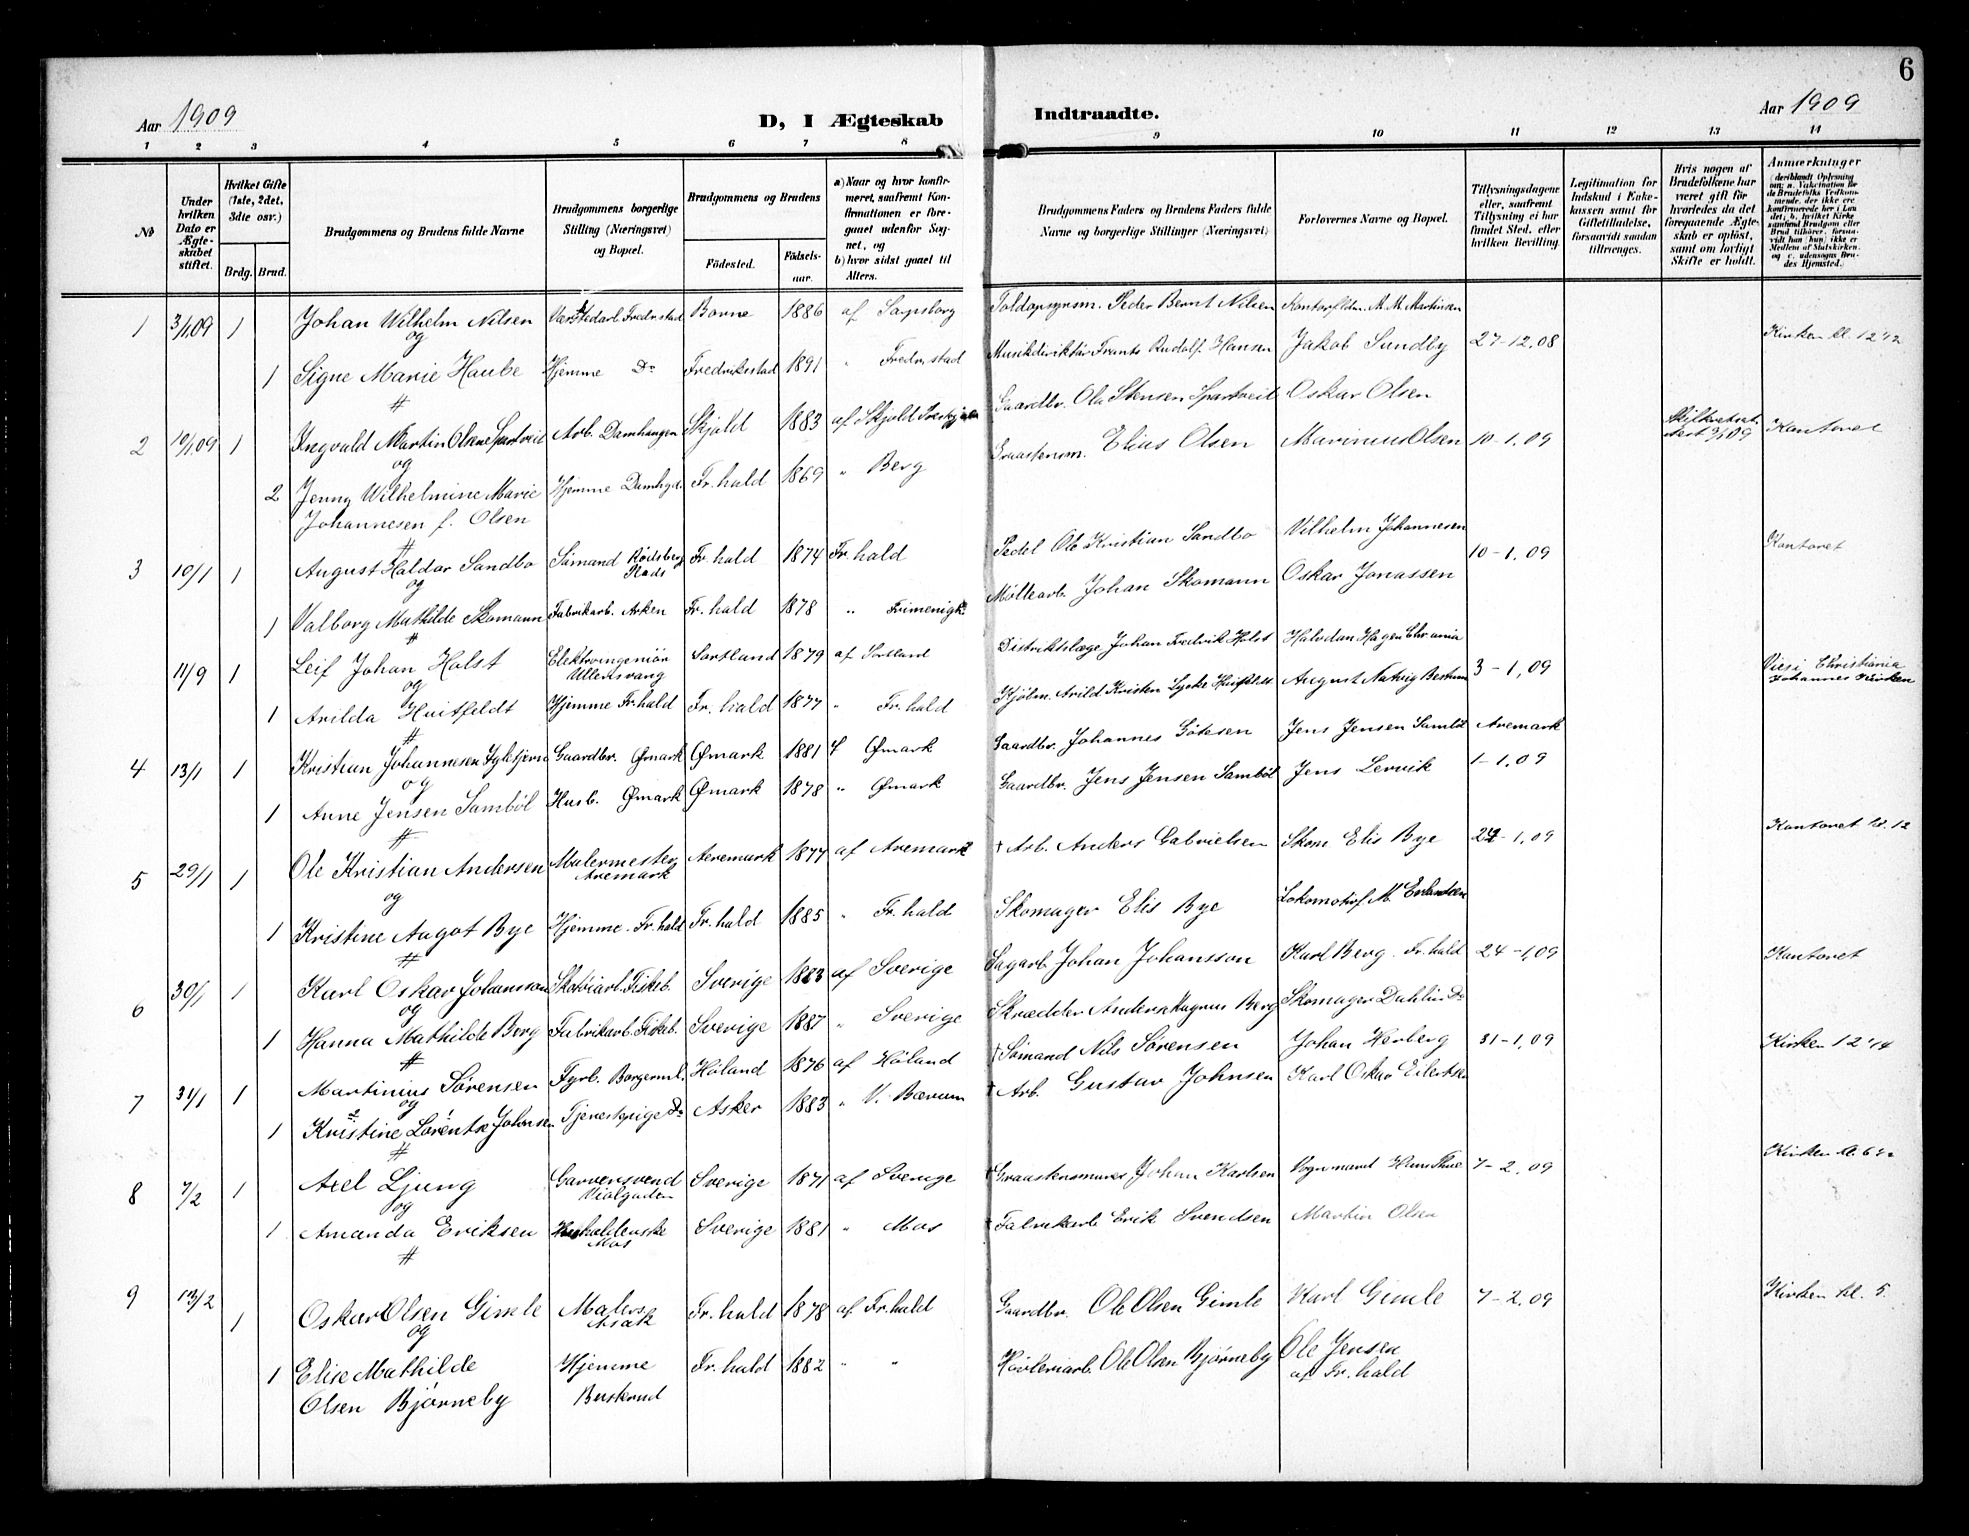 6
Aar 1909
D, I Ægteskab
Indtraadte.
Aar 1909
1 2 3 4 5 6 7 8 9 10 11 12 13 14
No
Under hvilken Dato er Ægteskabet stiftet.
Hvilket Gifte (1ste, 2det, 3die osv.)
Brdg. Brud.
Brudgommens og Brudens fulde Navne
Brudgommens borgerlige Stilling (Næringsvei) og Bopæl.
Brudgommens og Brudens
Fødested.
Fødselsaar.
a) Naar og hvor konfirmeret, saafremt Konfirmationen er foregaaet udenfor Sognet, og
b) hvor sidst gaaet til Alters.
Brudgommens Faders og Brudens Faders fulde Navne og borgerlige Stillinger (Næringsvei)
Forlovernes Navne og Bopæl.
Tillysningsdagene eller, saafremt Tillysning ei har fundet Sted, efter hvilken Bevilling.
Legitimation for Indskud i Enkekassen samt for Giftetilladelse, forsaavidt saadan tiltrænges.
Hvis nogen af Brudefolkene har været gift før hvorledes da det foregaaende Ægteskab er opløst, samt om lovligt Skifte er holdt.
Anmærkninger
1 3/1 09 1 Johan Wilhelm Nilsen Værkstedarb. Fredrstad Borne 1886 af Sarpsborg Toldopsynsm. Peder Bernt Nilsen Kontorfldm. M. M. Martinsen
og
1 Signe Marie Haube Hjemme Do Fredrikstad 1891 " Fredrstad Musikdirektør Frants Rudolf Hansen Jakob Sundby 27-12.08 Kirken kl. 12 1/2
#
2 10/1 09 1 Ingvald Martin Olsen Spartveit Arb. Damhaugen Skjold 1883 af Skjold Gaardbr. Ola Stensen Spartveit Oskar Olsen
og
2 Jenny Wilhelmine Marie Hjemme Damhgd. Fr. hald 1869 " Berg Elias Olsen Marinius Olsen 10-1.09 Kontoret
Johannesen f. Olsen
#
3 10/1 1 August Haldor Sandbo Sømand Rødsberg Fr. hald 1874 Fr. hald Pedel Ole Kristian Sandbo Vilhelm Johannesen 10-1.09 Kontoret
og
1 Valborg Mathilde Skomann Fabrikarb. Asken Fr. hald 1878 " Frimenigh. Møllearb. Johan Skomann Oskar Jonassen
#
11/9 1 Leif Johan Holst Elektroingeniør Ullensvang Sortland 1879 af Sortland Distriktslæge Johan Fredrik Holst Halvdan Hagen Chrania
og
1 Arilda Huitfeldt Hjemme Fr. hald Fr. hald 1877 " Fr. hald Kjølm. Arild Kristen Lycke Huitfeldt August Natvig Bestum 3-1.09 Viesi Christiania Johannes Kirken
#
4 13/1 1 Kristian Johannesen Gaardbr. Ømark Ømark 1881 af Ømark Gaardbr. Johannes Gøtesen Jens Jensen Sambøl Aremark
og
1 Anne Jensen Sambøl Husb. Ømark Ømark 1878 " Ømark Gaardbr. Jens Jensen Sambøl Jens Lervik 1-1.09
#
5 29/1 1 Ole Kristian Andersen Malermester Aremark Aremark 1877 af Aremark † Arb. Anders Gabrielsen Skom. Elis Bye 24-1.09 Kontoret kl. 12
og
1 Kristine Aagot Bye Hjemme. Fr. hald Fr. hald 1885 " Fr. hald Skomager Elis Bye Lokomotivf. M. Erlandsen
#
6 30/1 1 Karl Oskar Johansson Skotøiarb. Fiskeb. Sverige 1883 af Sverige Sagarb. Johan Johansson Karl Berg. Fr. hald 24-1.09 Kontoret
og
1 Hanna Mathilde Berg Fabrikarb. Fiskeb. Sverige 1887 " Sverige Skrædder Anders Magnus Berg Skomager Dahlin Do
#
7 31/1 1 Martinius Sørensen Fyrb. Borgerml. Høland 1876 af Høland † Sømand Nils Sørensen Johan Herberg 31-1.09 Kirken 12 1/4
og
1 Kristine Lorentse Johnsen Tjenestepige Do Asker 1883 " V. Bærum † Arb. Gustav Johnsen Karl Oskar Eilertsen
#
8 7/2 1 Axel Ljung Garversvend Violgaden Sverige 1871 af Sverige † Graastensmurer Johan Karlsen Vognmand Hans Thue 7-2.09 Kirken kl. 6 1/2
og
1 Amanda Eriksen Husholderske Mos Sverige 1881 " Mos † Fabrikarb Erik Svendsen Martin Olsen
#
9 13/2 1 Oskar Olsen Gimle Maler Asak Fr. hald 1878 af Fr. hald Gaardbr. Ole Olsen Gimle Karl Gimle 7-2.09 Kirken kl. 5.
og
1 Elise Mathilde Hjemme Fr. hald 1882 " " Høvleriarb. Ole Olsen Bjørneby Ole Jensen
Olsen Bjørneby Buskerud af Fr. hald